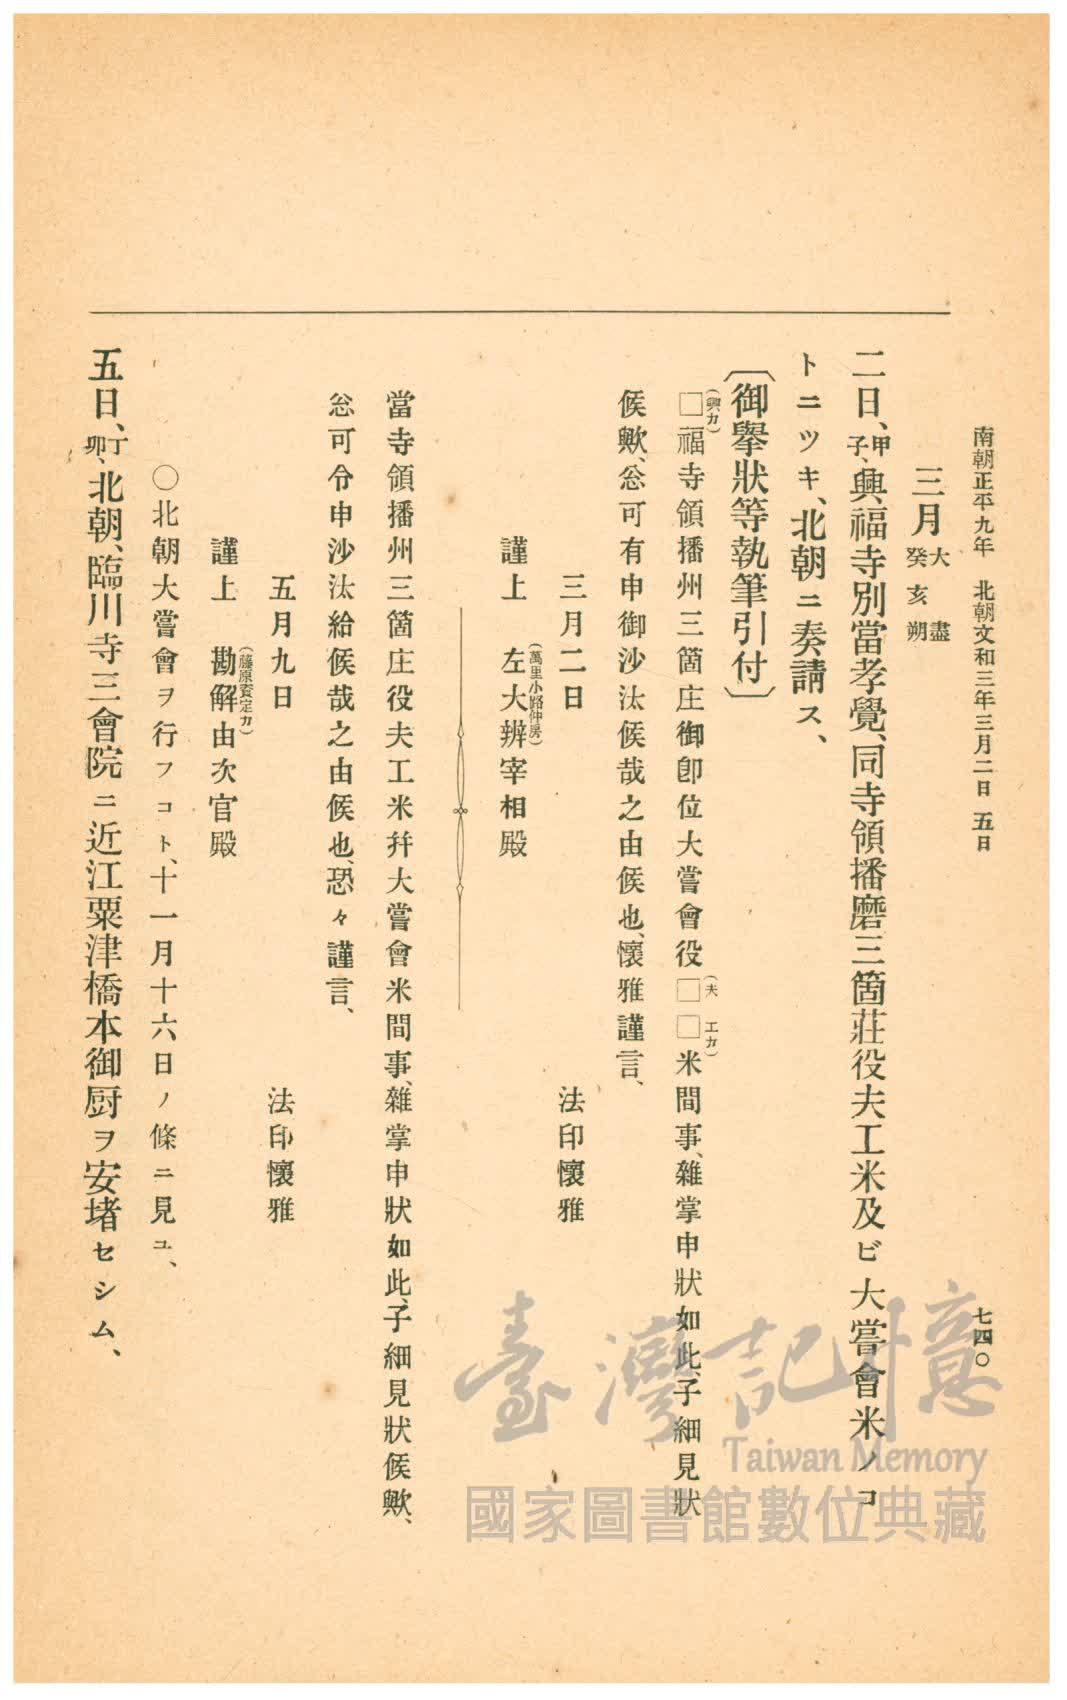 南朝正平九年　北朝文和三年三月二日　五日
七四〇
三月大盡癸亥朔
二日、甲子、興福寺別當孝覺、同寺領播磨三箇莊役夫工米及ビ大嘗會米ノコ
トニツキ、北朝ニ奏請ス、
〔御擧狀等執筆引付〕
□(興カ)福寺領播州三箇庄御卽位大嘗會役□□(夫工カ)米間事、雜掌申狀如此、子細見狀
候歟、忩可有申御沙汰候哉之由候也、懷雅謹言、
三月二日　法印懷雅
謹上　左大辨宰相殿(萬里小路仲房)
當寺領播州三箇庄役夫工米幷大嘗會米間事、雜掌申狀如此、子細見狀候歟、
忩可令申沙汰給候哉之由候也、恐々謹言、
五月九日　法印懷雅
謹上　勘解由次官殿(藤原定カ)
〇北朝大嘗會ヲ行フコト、十一月十六日ノ條ニ見ユ、
五日、丁卯、北朝、臨川寺三會院ニ近江粟津橋本御厨ヲ安堵セシム、
臺灣記憶
Taiwan Memory
國家圖書館數位典藏